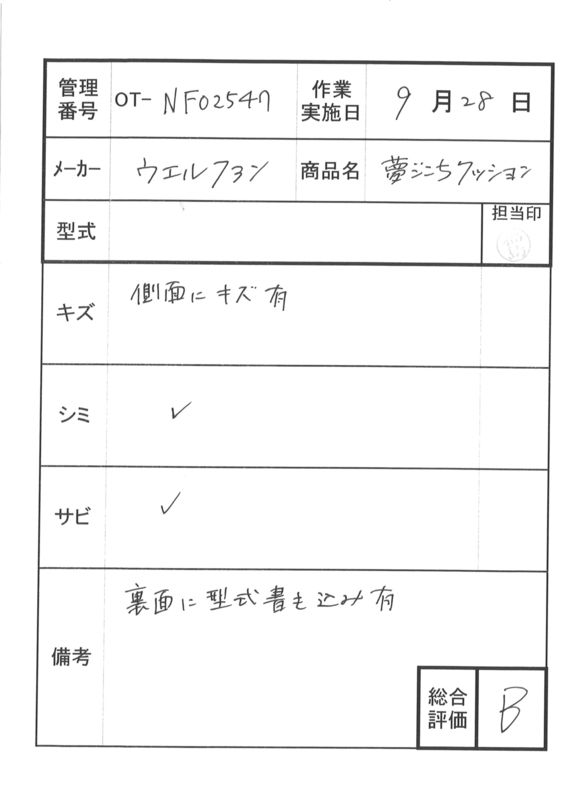 管理番号 OT- NF02547 作業実施日 9月28日
メーカー ウエルファン 商品名 夢ごこちクッション
型式 担当印
キズ 側面にキズ有
シミ ✓
サビ ✓
備考 裏面に型式書き込み有
総合評価 B